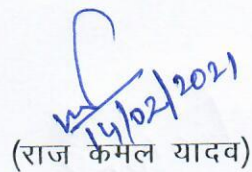 14/02/2021
(राज केमल यादव)